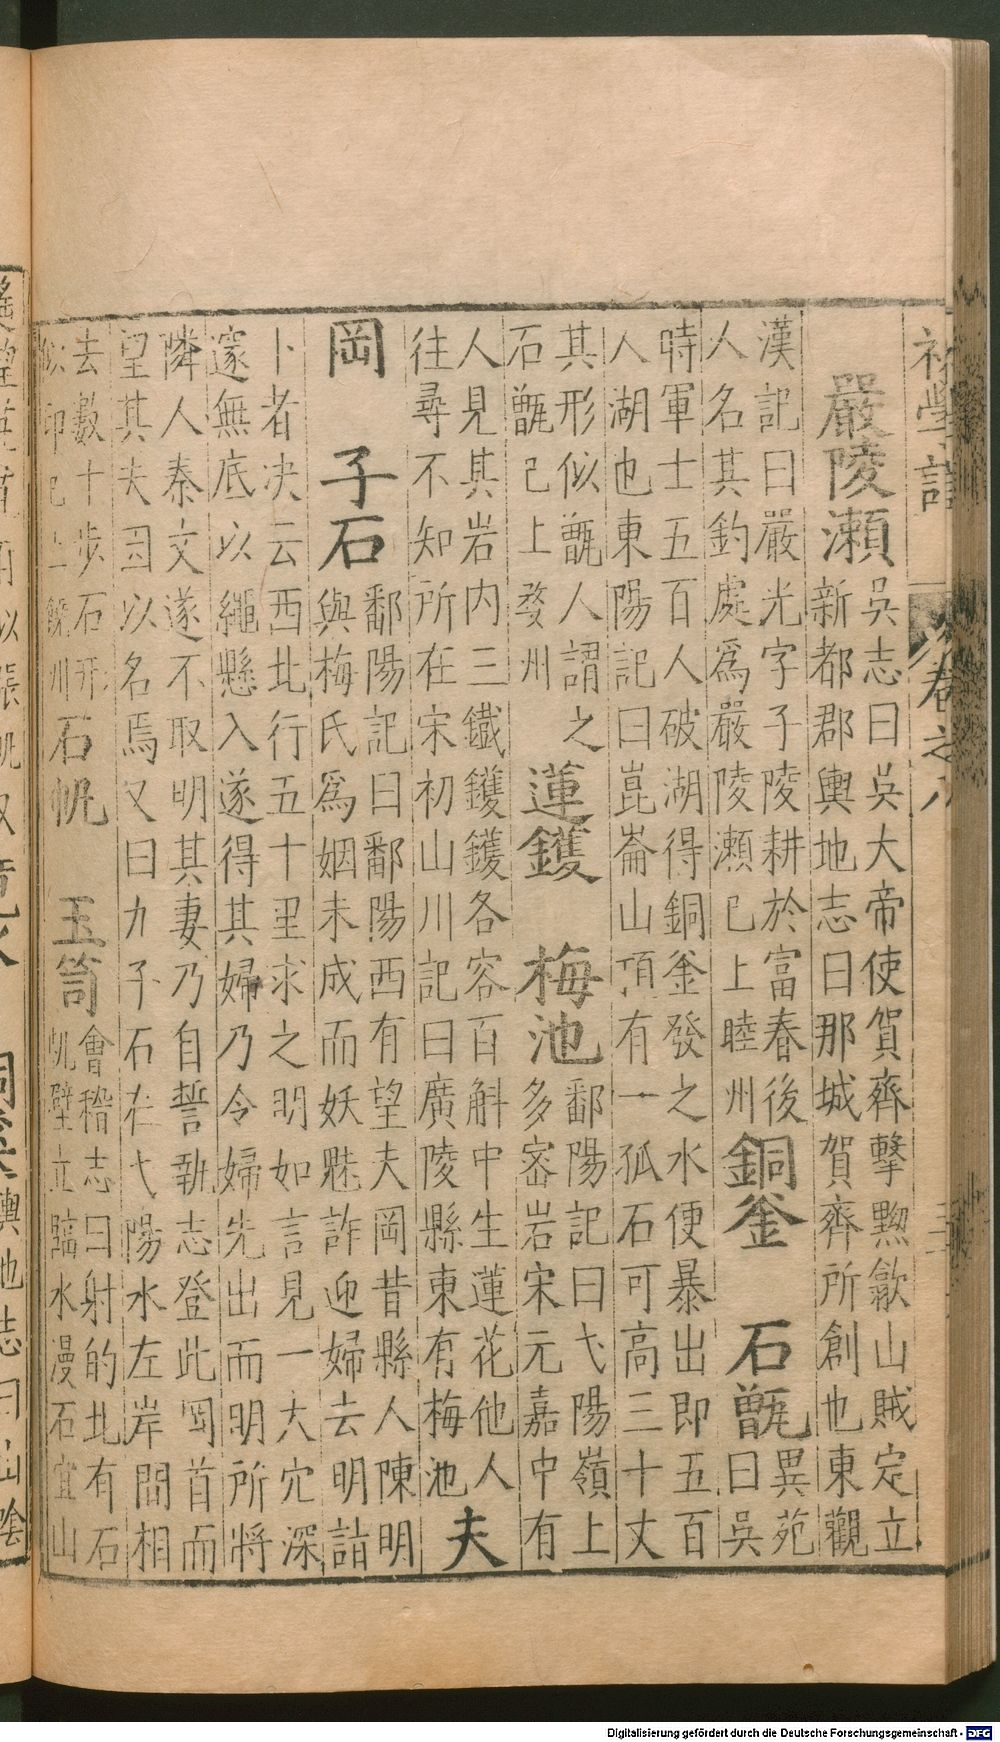 初學記 卷之八
嚴陵瀨
吳志曰吳大帝使賀齊擊黟歙山賊定立
新都郡輿地志曰那城賀齊所創也東觀
漢記曰嚴光字子陵耕於富春後
人名其釣處爲嚴陵瀨已上睦州
銅釜 石甑
異苑
曰吳
時軍士五百人破湖得銅釜發之水便暴出即五百
人湖也東陽記曰崑崙山頂有一孤石可高三十丈
其形似甑人謂之
石甑已上婺州
蓮鑊 梅池
鄱陽記曰弋陽嶺上
多密岩宋元嘉中有
人見其岩内三鐵鑊鑊各容百斛中生蓮花他人
往尋不知所在宋初山川記曰廣陵縣東有梅池
夫
岡 子石
鄱陽記曰鄱陽西有望夫岡昔縣人陳明
與梅氏爲姻未成而妖魅詐迎婦去明詣
卜者决云西北行五十里求之明如言見一大穴深
邃無底以繩懸入遂得其婦乃令婦先出而明所將
隣人秦文遂不取明其妻乃自誓執志登此岡首而
望其夫因以名焉又曰九子石在弋陽水左岸間相
去數十步石形
似印已上饒州
石帆 玉笥
會稽志曰射的北有石
帆壁立臨水漫石宜山